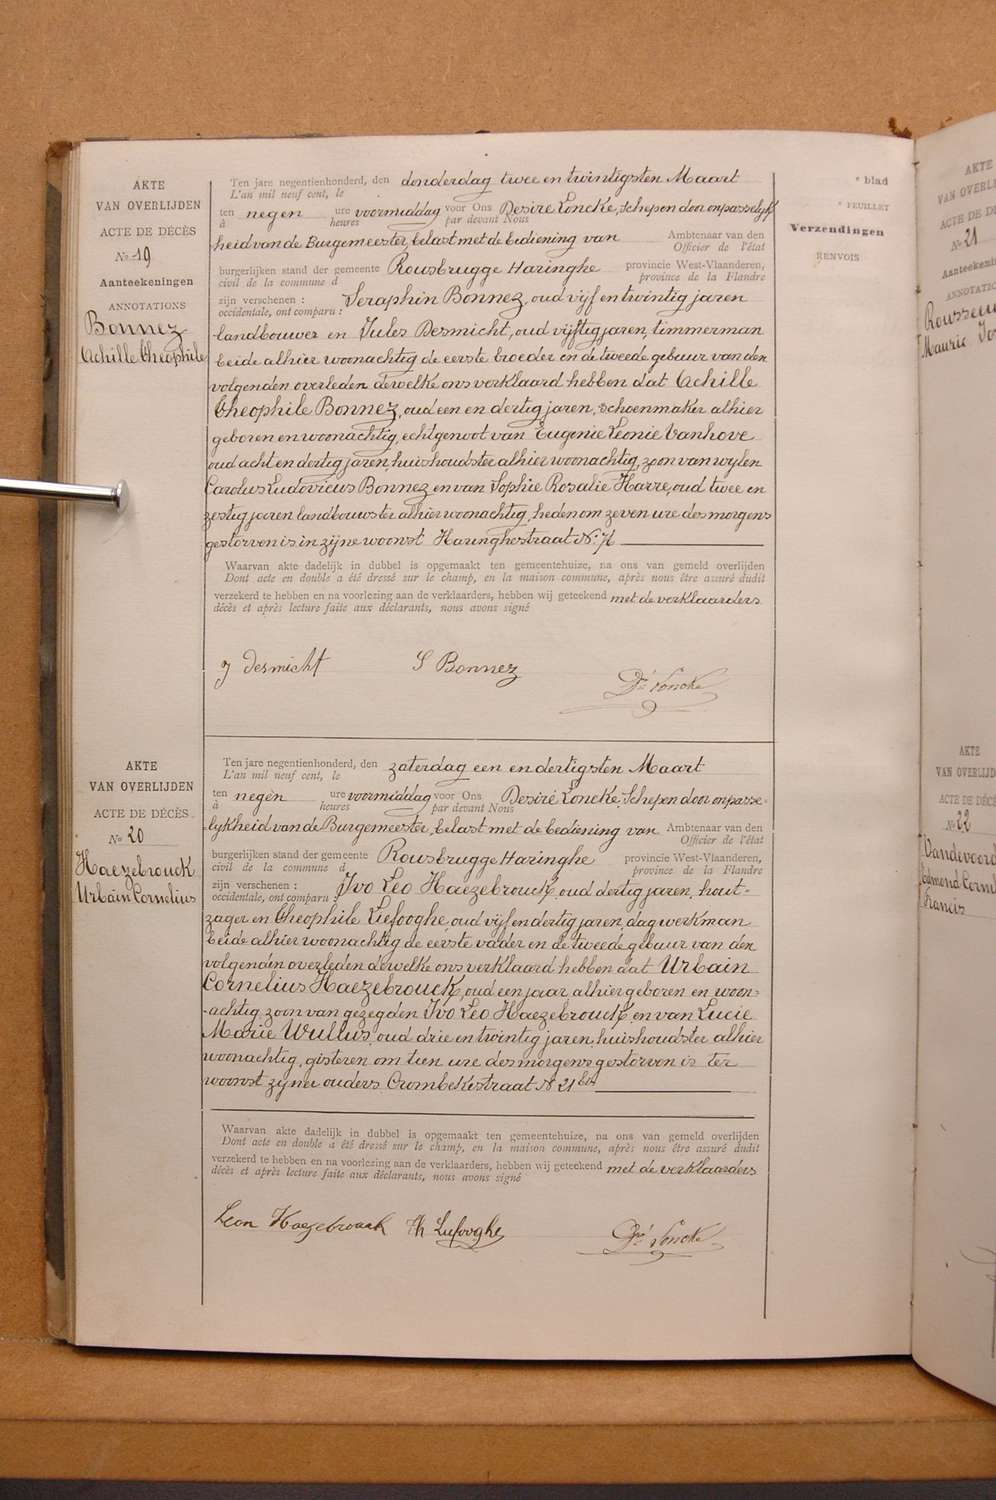 AKTE
VAN OVERLIJDEN
ACTE DE DÉCÈS
No 19
Aanteekeningen
ANNOTATIONS
Bonnez
Achille Theophile
Ten jare negentienhonderd, den donderdag twee en twintigsten Maart
L'an mil neuf cent, le
ten negen ure voormiddag voor Ons Desiré Loncke, Schepen door onpasselijk
à heures par devant Nous
heid van de Burgemeester, belast met de bediening van Ambtenaar van den
Officier de l'état
burgerlijken stand der gemeente Rousbrugge Haringhe provincie West-Vlaanderen,
civil de la commune d province de la Flandre
zijn verschenen : Seraphin Bonnez, oud vijf en twintig jaren
occidentale, ont comparu :
landbouwer en Jules Desmicht, oud vijftig jaren, timmerman
beide alhier woonachtig de eerste broeder en de tweede gebuur van den
volgenden overleden dewelke ons verklaard hebben dat Achille
Theophile Bonnez, oud een en dertig jaren, schoenmaker alhier
geboren en woonachtig, echtgenoot van Eugenie Leonie Vanhove
oud acht en dertig jaren, huishoudster alhier woonachtig, zoon van wylen
Carolus Ludovicus Bonnez en van Sophie Rosalie Harre, oud twee en
zestig jaren landbouwster alhier woonachtig, heden om zeven ure des morgens
gestorven is in zijne woonst Haringhestraat No
Waarvan akte dadelijk in dubbel is opgemaakt ten gemeentehuize, na ons van gemeld overlijden
Dont acte en double a été dressé sur le champ, en la maison commune, après nous être assuré dudit
verzekerd te hebben en na voorlezing aan de verklaarders, hebben wij geteekend met de verklaarders
décès et après lecture faite aux déclarants, nous avons signé
J Desmicht S Bonnez
Dré Loncke
AKTE
VAN OVERLIJDEN
ACTE DE DÉCÈS
No 20
Haezebrouck
Urbain Cornelius
Ten jare negentienhonderd, den zaterdag een en dertigsten Maart
L'an mil neuf cent, le
ten negen ure voormiddag voor Ons Desiré Loncke, Schepen door onpasse-
à heures par devant Nous
lijkheid van de Burgemeester, belast met de bediening van Ambtenaar van den
Officier de l'état
burgerlijken stand der gemeente Rousbrugge Haringhe provincie West-Vlaanderen,
civil de la commune d province de la Flandre
zijn verschenen : Ivo Leo Haezebrouck, oud dertig jaren, hout-
occidentale, ont comparu :
zager en Theophile Liefooghe, oud vijf en dertig jaren, dagwerkman
beide alhier woonachtig de eerste vader en de tweede gebuur van den
volgenden overleden dewelke ons verklaard hebben dat Urbain
Cornelius Haezebrouck, oud een jaar alhier geboren en woon-
-achtig, zoon van gezegden Ivo Leo Haezebrouck, en van Lucie
Marie Wullus, oud drie en twintig jaren, huishoudster alhier
woonachtig, gisteren om tien ure des morgens gestorven is ter
woonst zijner ouders Crombekestraat No 21 bis
Waarvan akte dadelijk in dubbel is opgemaakt ten gemeentehuize, na ons van gemeld overlijden
Dont acte en double a été dressé sur le champ, en la maison commune, après nous être assuré dudit
verzekerd te hebben en na voorlezing aan de verklaarders, hebben wij geteekend met de verklaarders
décès et après lecture faite aux déclarants, nous avons signé
Leon Haezebrouck Th Liefooghe Dré Loncke
e blad
e FEUILLET
Verzendingen
RENVOIS
AKTE
VAN OVERLIJ
ACTE DE DÉC
No 21
Aanteekeni
ANNOTATIO
Rousseeu
Mauric Ivo
AKTE
VAN OVERLIJD
ACTE DE DÉCÈ
No 22
Vandevoord
Edmond Corn
Francis